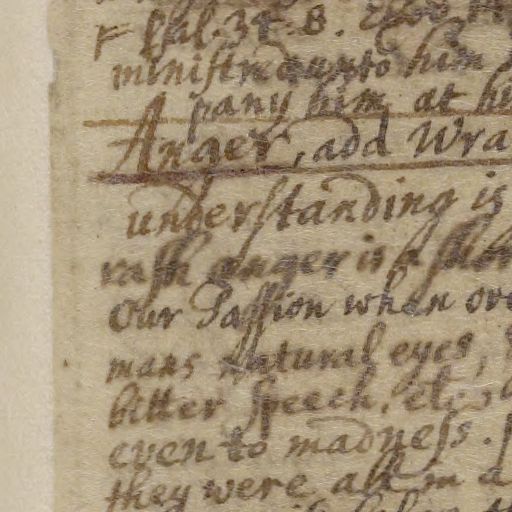 Psal. 34. 8.
ministred unto him
pany him at
Anger, add Wra
understanding is
rash anger is a
Our Passion when ove
mans natural eyes,
bitter speech, etc,
even to madness.
they were all in a